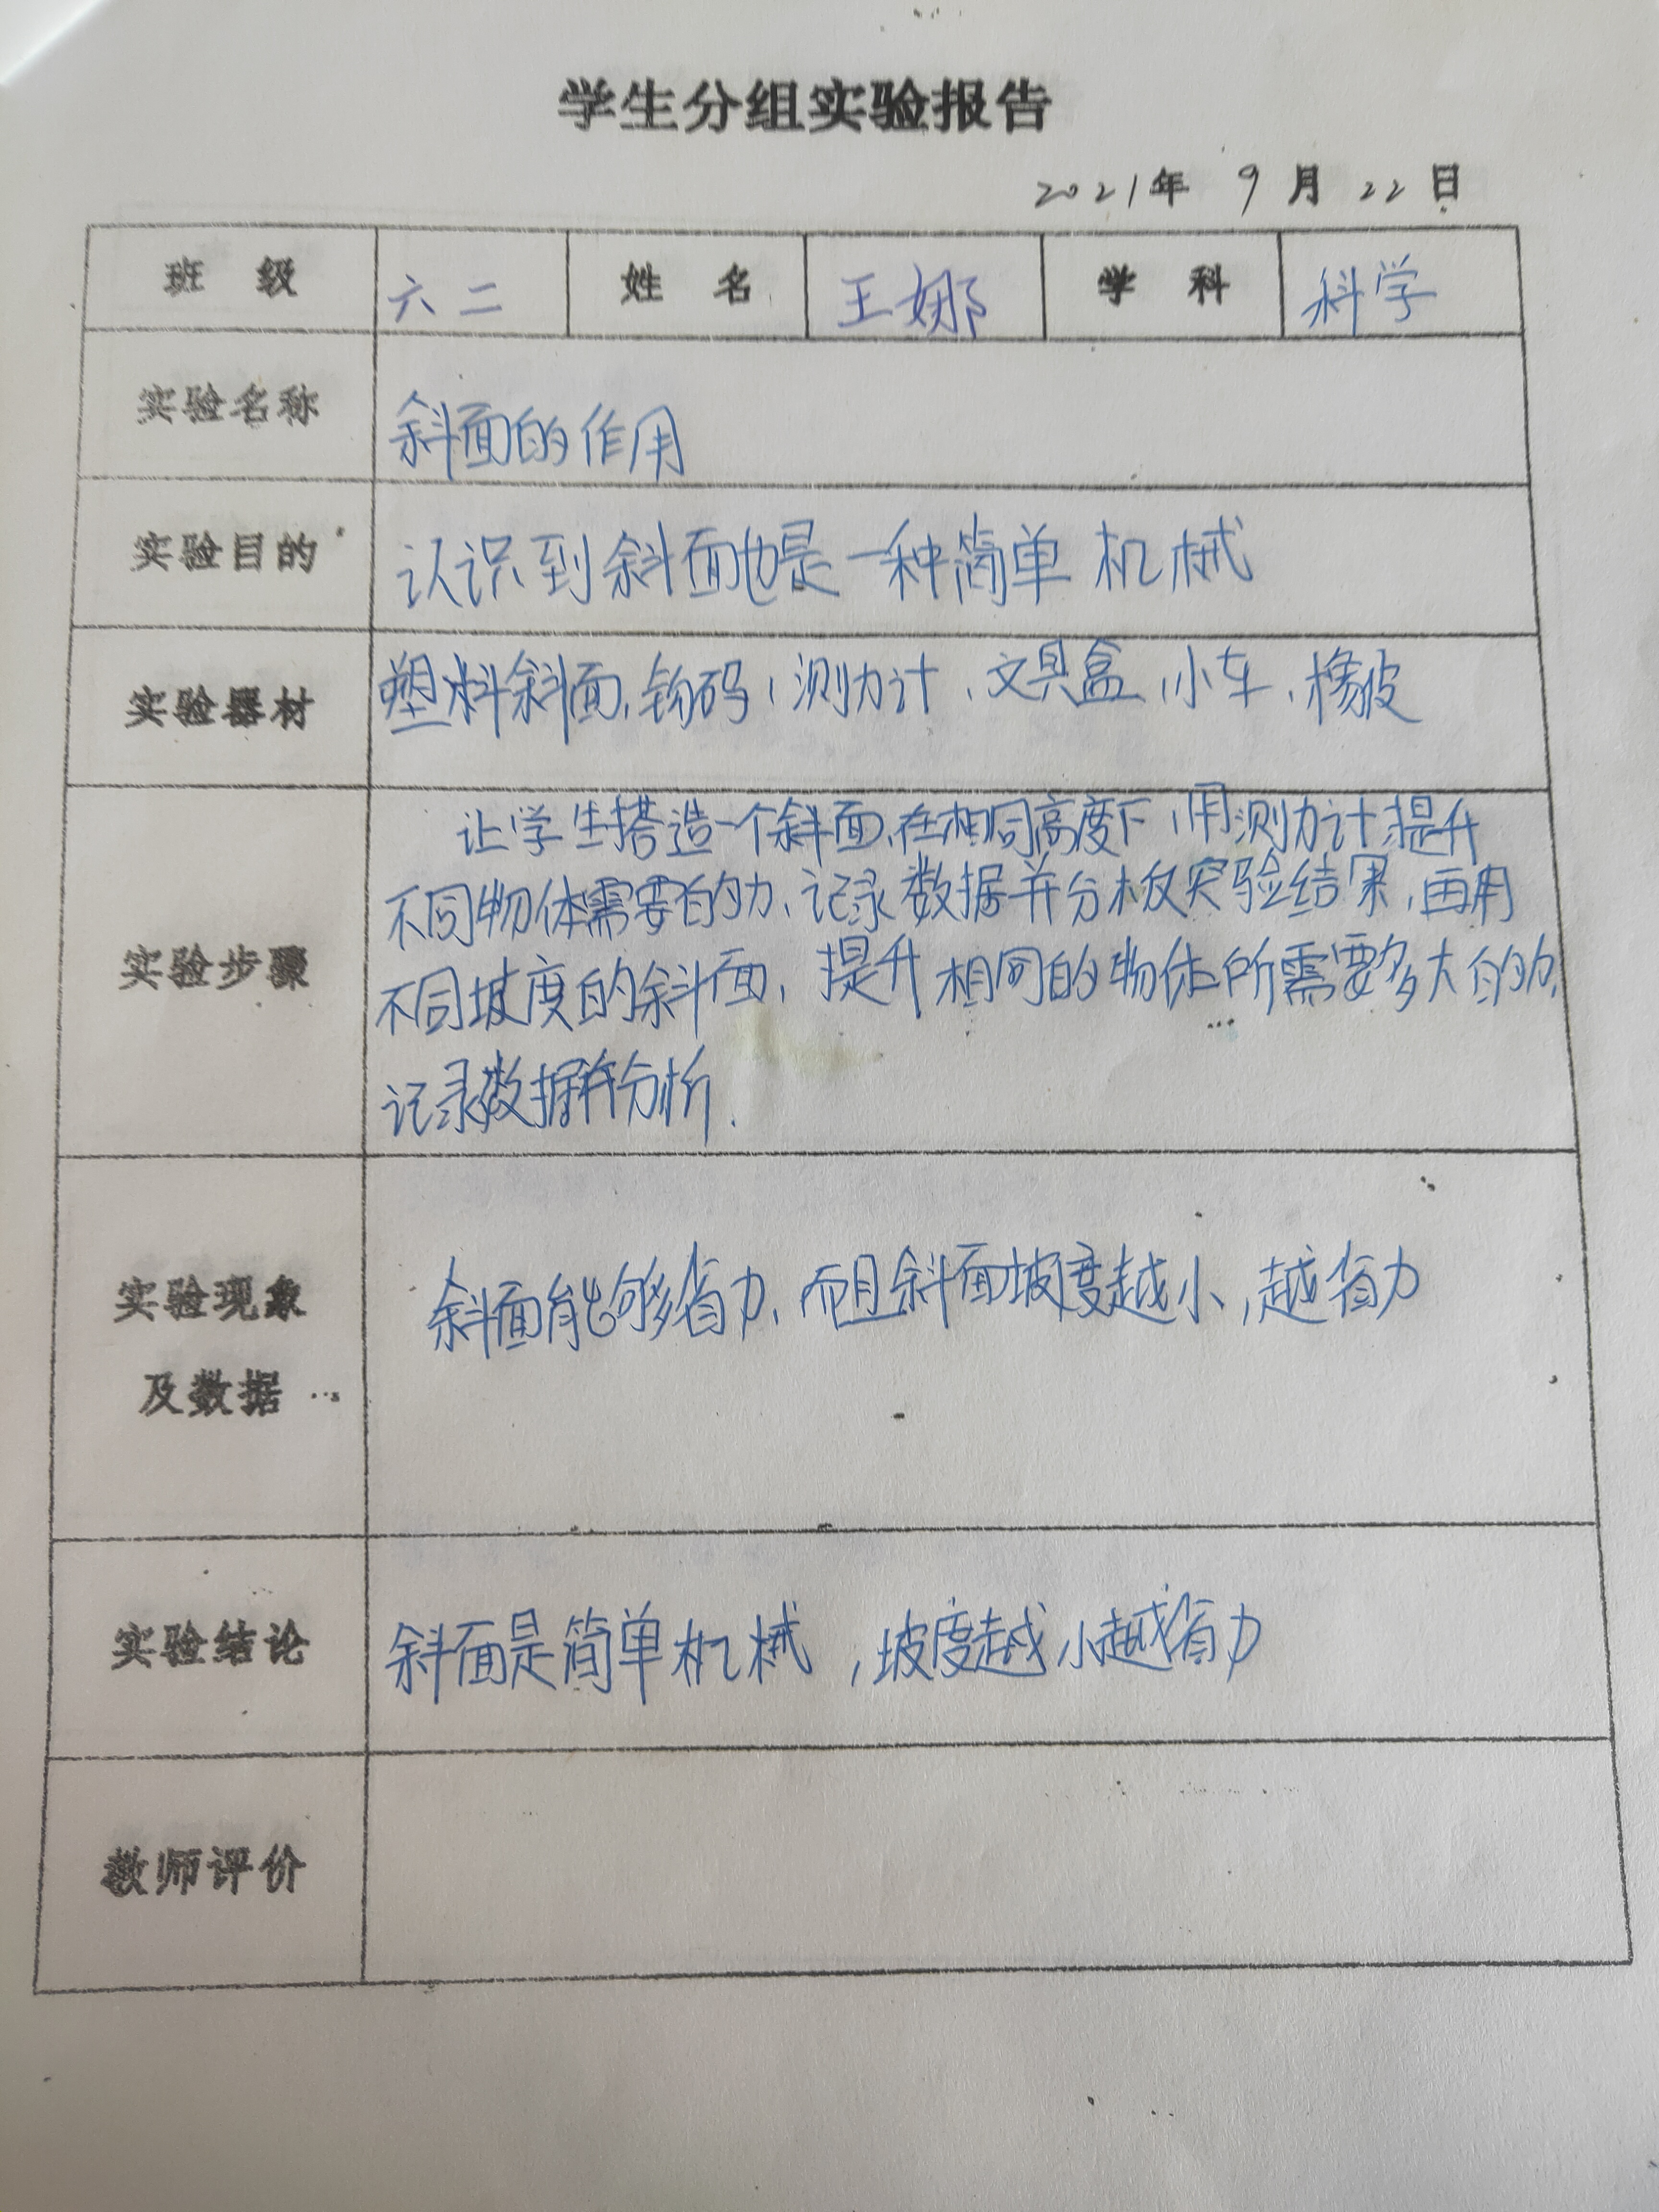 学生分组实验报告
2021年 9月 22日
班 级 六二 姓 名 王娜 学 科 科学
实验名称 斜面的作用
实验目的 认识到斜面也是一种简单机械
实验器材 塑料斜面,钩码,测力计,文具盒,小车,橡皮
让学生搭造一个斜面,在相同高度下,用测力计提升
不同物体需要的力,记录数据并分析实验结果,再用
实验步骤 不同坡度的斜面,提升相同的物体所需要多大的力,
记录数据并分析.
实验现象 斜面能够省力,而且斜面坡度越小,越省力
及数据
实验结论 斜面是简单机械,坡度越小越省力
教师评价